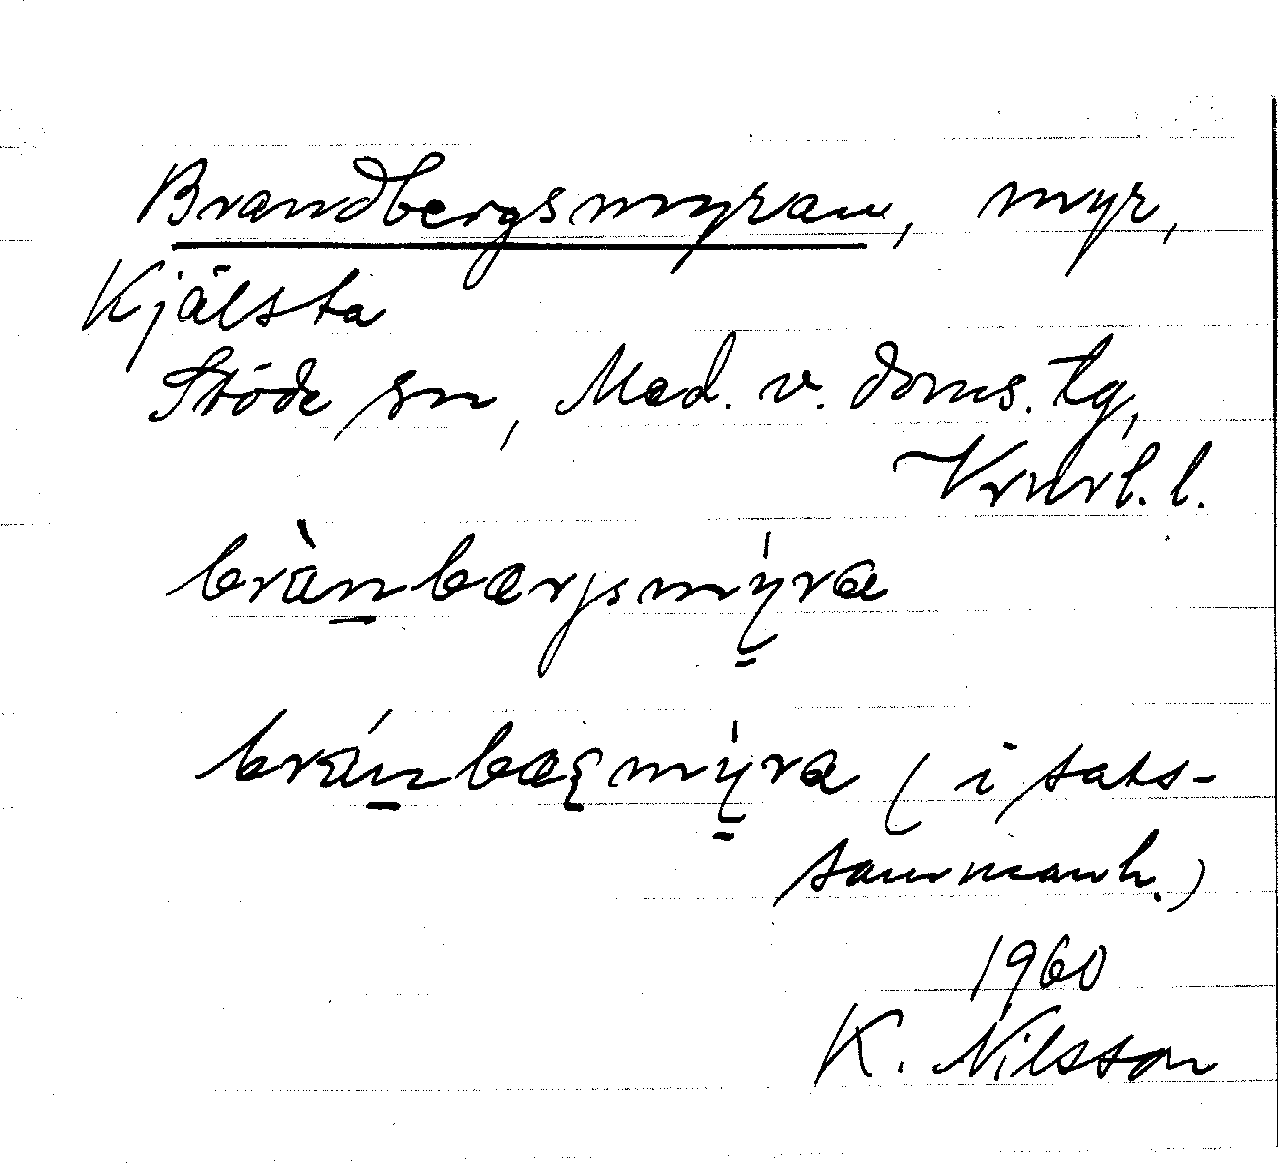 Brandbergsmyran, myr,
Kjälsta
Stöde sn, Med. v. doms. tg,
Vrnrl. l.
brànbærjsmy̍ra
bránbæșmy̍ra (i sats-
sammanh.)
1960
K. Nilsson